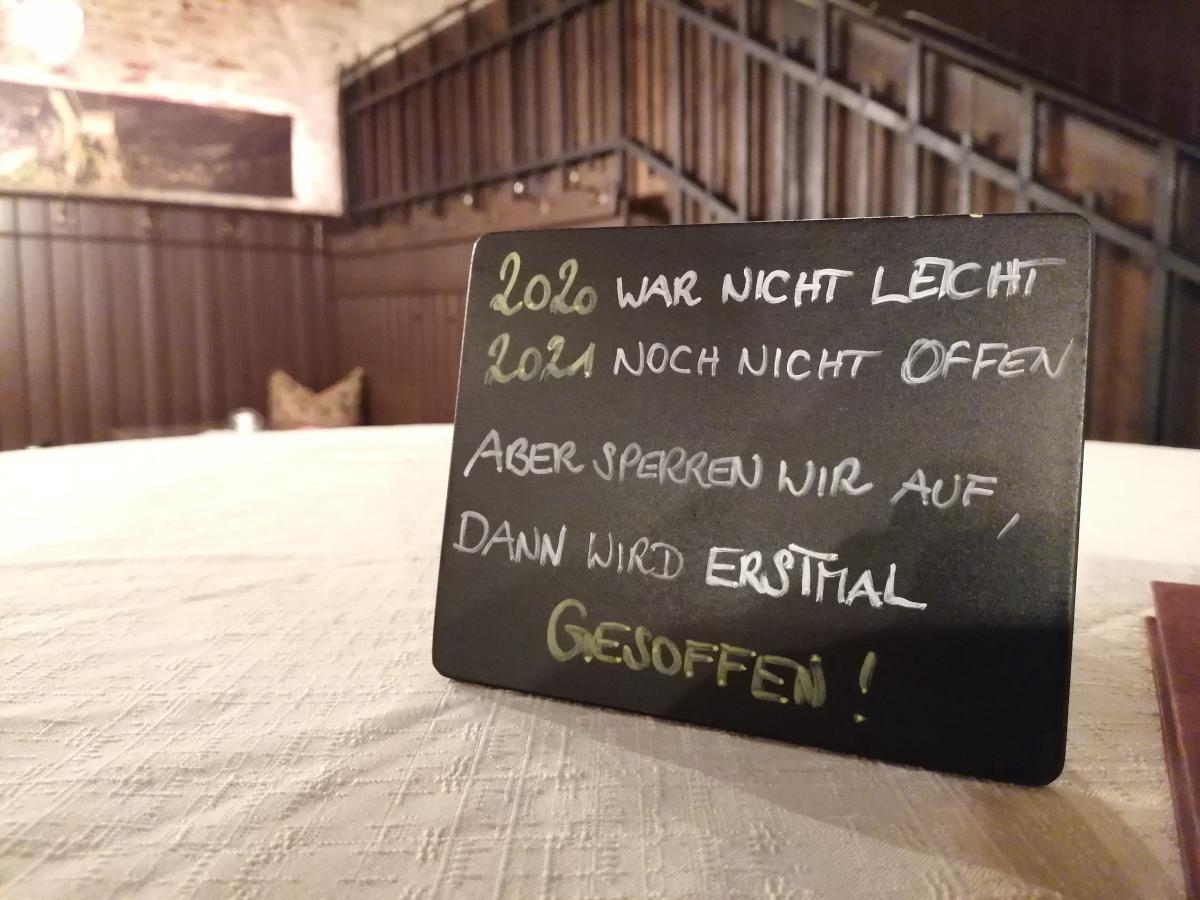 2020 WAR NICHT LEICHT
2021 NOCH NICHT OFFEN
ABER SPERREN WIR AUF,
DANN WIRD ERSTMAL
GESOFFEN!